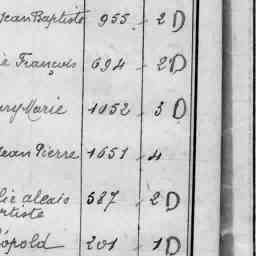 Jean Baptiste 955 2 D
François 694 2 D
Marie 1052 3 D
Jean Pierre 1651 4
alexis 587 2 D
Léopold 201 1 D